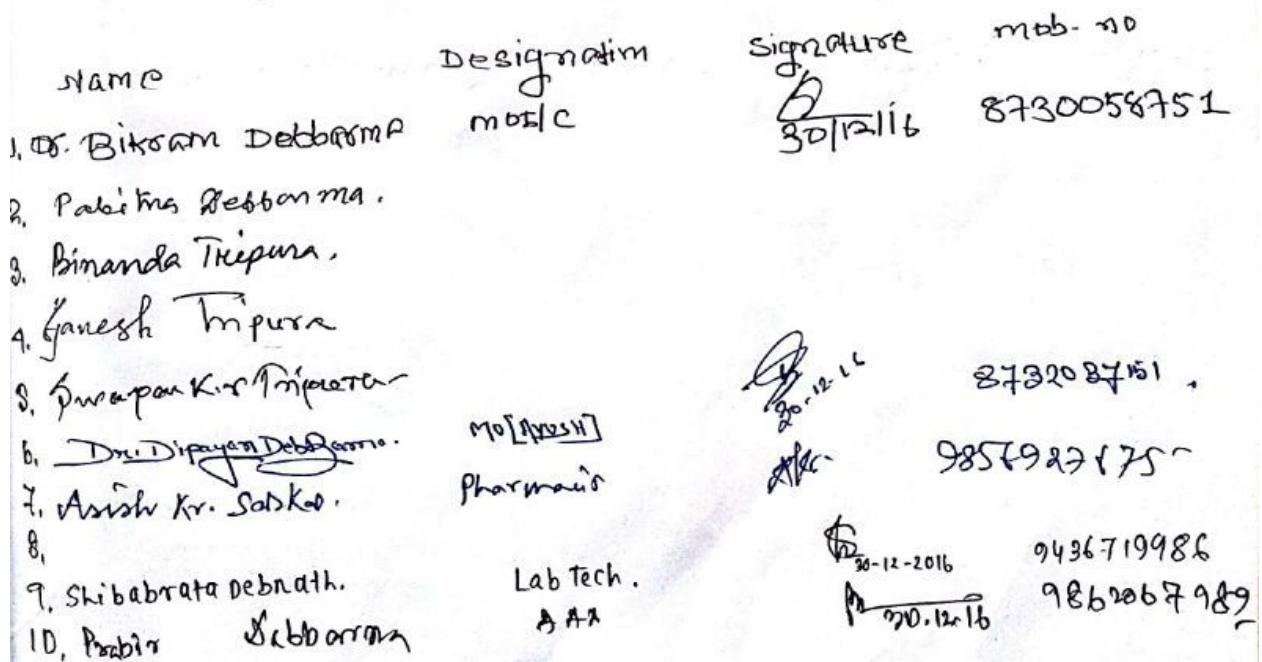 Name Designation Signature mob. no
1. Dr. Bikram Debbarma MOI/C 30/12/16 8730058751
2. Pabitra Debbarma.
3. Binanda Tripura.
4. Ganesh Tripura
5. Swapan Kr Tripura
6. Dr. Dipayan Debbarma. MO[AYUSH] 30.12.16 8732037151.
7. Asish Kr. Sarkar. Pharmacist
8.
9. Shibabrata Debnath. Lab Tech. 30-12-2016 9436719986
10. Prabir Debbarma 30.12.16 9862067989